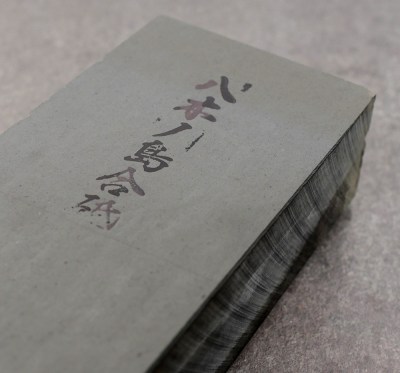 八木ノ島合砥